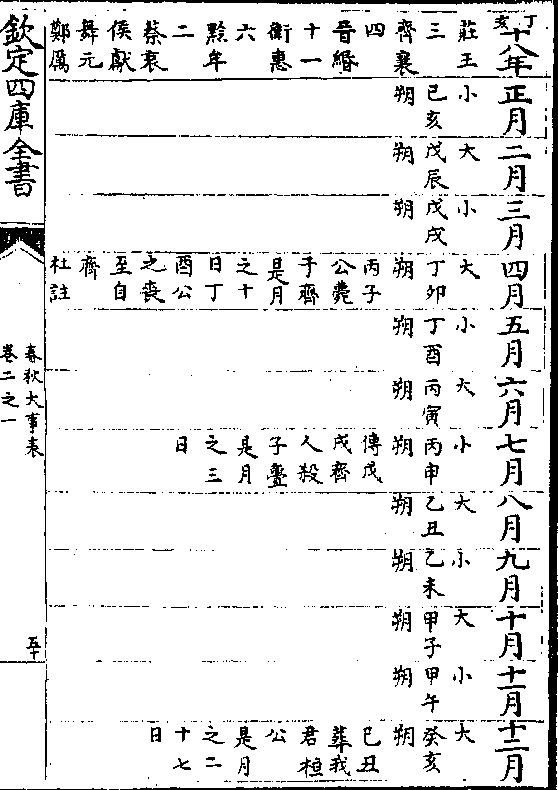 丁亥
十八年
莊王
三
齊襄
四
晉緡
十一
衛惠
六
黔牟
二
蔡哀
侯獻
舞元
鄭厲
正月
小
己亥
朔
二月
大
戊辰
朔
三月
小
戊戌
朔
四月
大
丁卯
朔
丙子
公薨
于齊
是月
之十
日丁
酉公
之喪
至自
齊
杜註
五月
小
丁酉
朔
六月
大
丙寅
朔
七月
小
丙申
朔
傳戊
戌齊
人殺
子亹
是月
之三
日
八月
大
乙丑
朔
九月
小
乙未
朔
十月
大
甲子
朔
十一月
小
甲午
朔
十二月
大
癸亥
朔
己丑
葬我
君桓
公
是月
之二
十七
日
欽定四庫全書
春秋大事表
卷二之一
五十